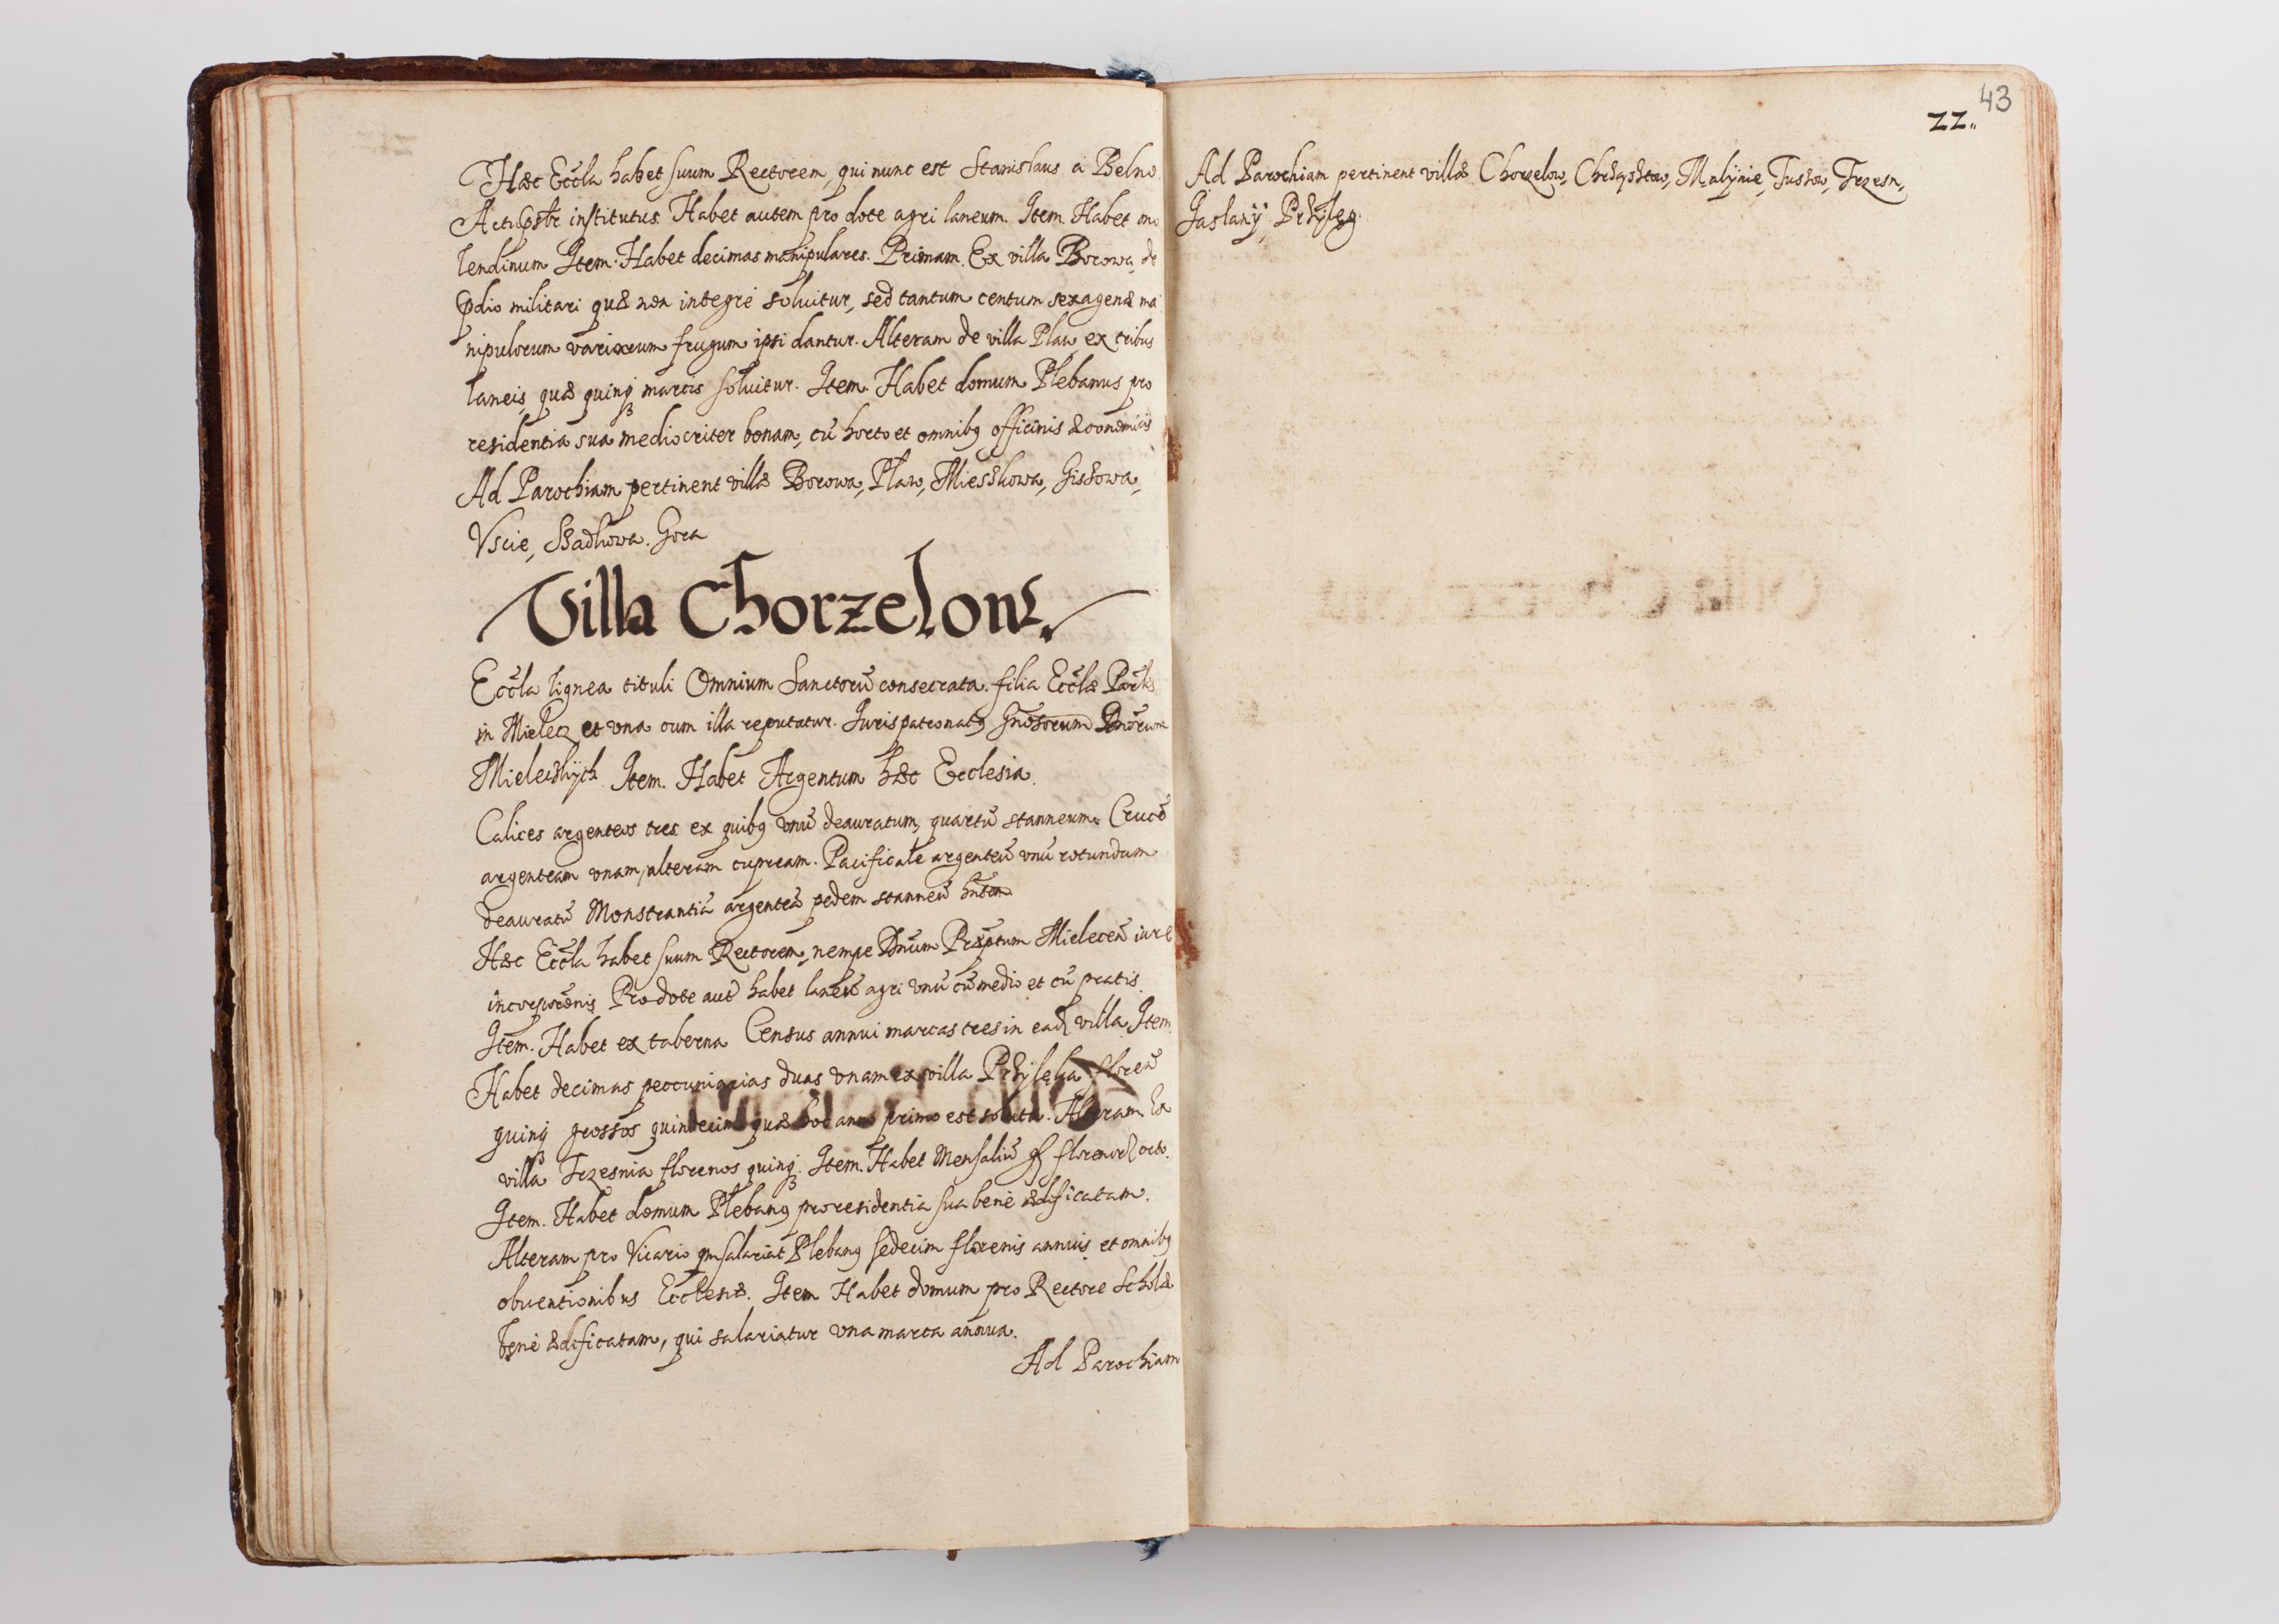 Hæc Eccła habet suum Rectorem, qui nunc est Stanislaus à Belno
institutus. Habet autem pro dote agri laneum. Item. Habet mo
lendinum Item. Habet decimas manipulares. Primam. Ex villa Borowa, de
pdio militari quæ non integrè soluitur, sed tantum centum sexagenæ ma
nipulorum variorum frugum ipsi dantur. Alteram de villa Plaw ex tribus
laneis, quæ quinq marcis soluitur. Item. Habet domum Plebanus pro
residentia sua mediocriter bonam, cū horto et omnibq officinis æconomicis
Ad Parochiam pertinent villæ Borowa, Plaw, Mieszkowa, Gissowa,
Vscie, Sadkowa. Gora
Villa Chorzelow.
Eccła lignea tituli Omnium Sanctorū consecrata. filia Eccłæ
in Mielecz et vna cum illa reputatur. Jurispatronatq Gnosorum Dnorum
Mieleczkych. Item. Habet Argentum hæc Ecclesia.
Calices argenteos tres ex quibq vnū deauratum, quartū stanneum. Crucē
argenteam vnam, alteram cupream. Pacificale argenteū vnū rotundum
deauratū Monstrantiā argenteā pedem stanneū hnten
Hæc Eccła habet suum Rectorem, nempe Dnum Præptum Mielecen iure
incorporōnis Pro dote autē habet laneū agri vnū cū medio et cū pratis.
Item. Habet ex taberna Census annui marcas tres in ead villa. Item
Habet decimas pecuniarias duas vnam ex villa Przylęka florenū
quinq grossos quindecim quæ hoc anno primo est soluta. Alteram. Ex
villa Trzesnia florenos quinq. Item. Habet Mensaliū octo.
Item. Habet domum Plebanq pro residentia sua benè ædificatam.
Alteram pro Vicario qm salariat Plebanq sedecim florenis annuis et omnibq
obuentionibus Ecclesiæ. Item Habet domum pro Rectore Scholæ
benè ædificatam, qui salariatur vna marca annua.
Ad Parochiam
43
22.
Ad Parochiam pertinent villæ Chorzelow, Chrząstow, Malynie, Tuszow, Trzesn,
Jaslany, Przyleg.